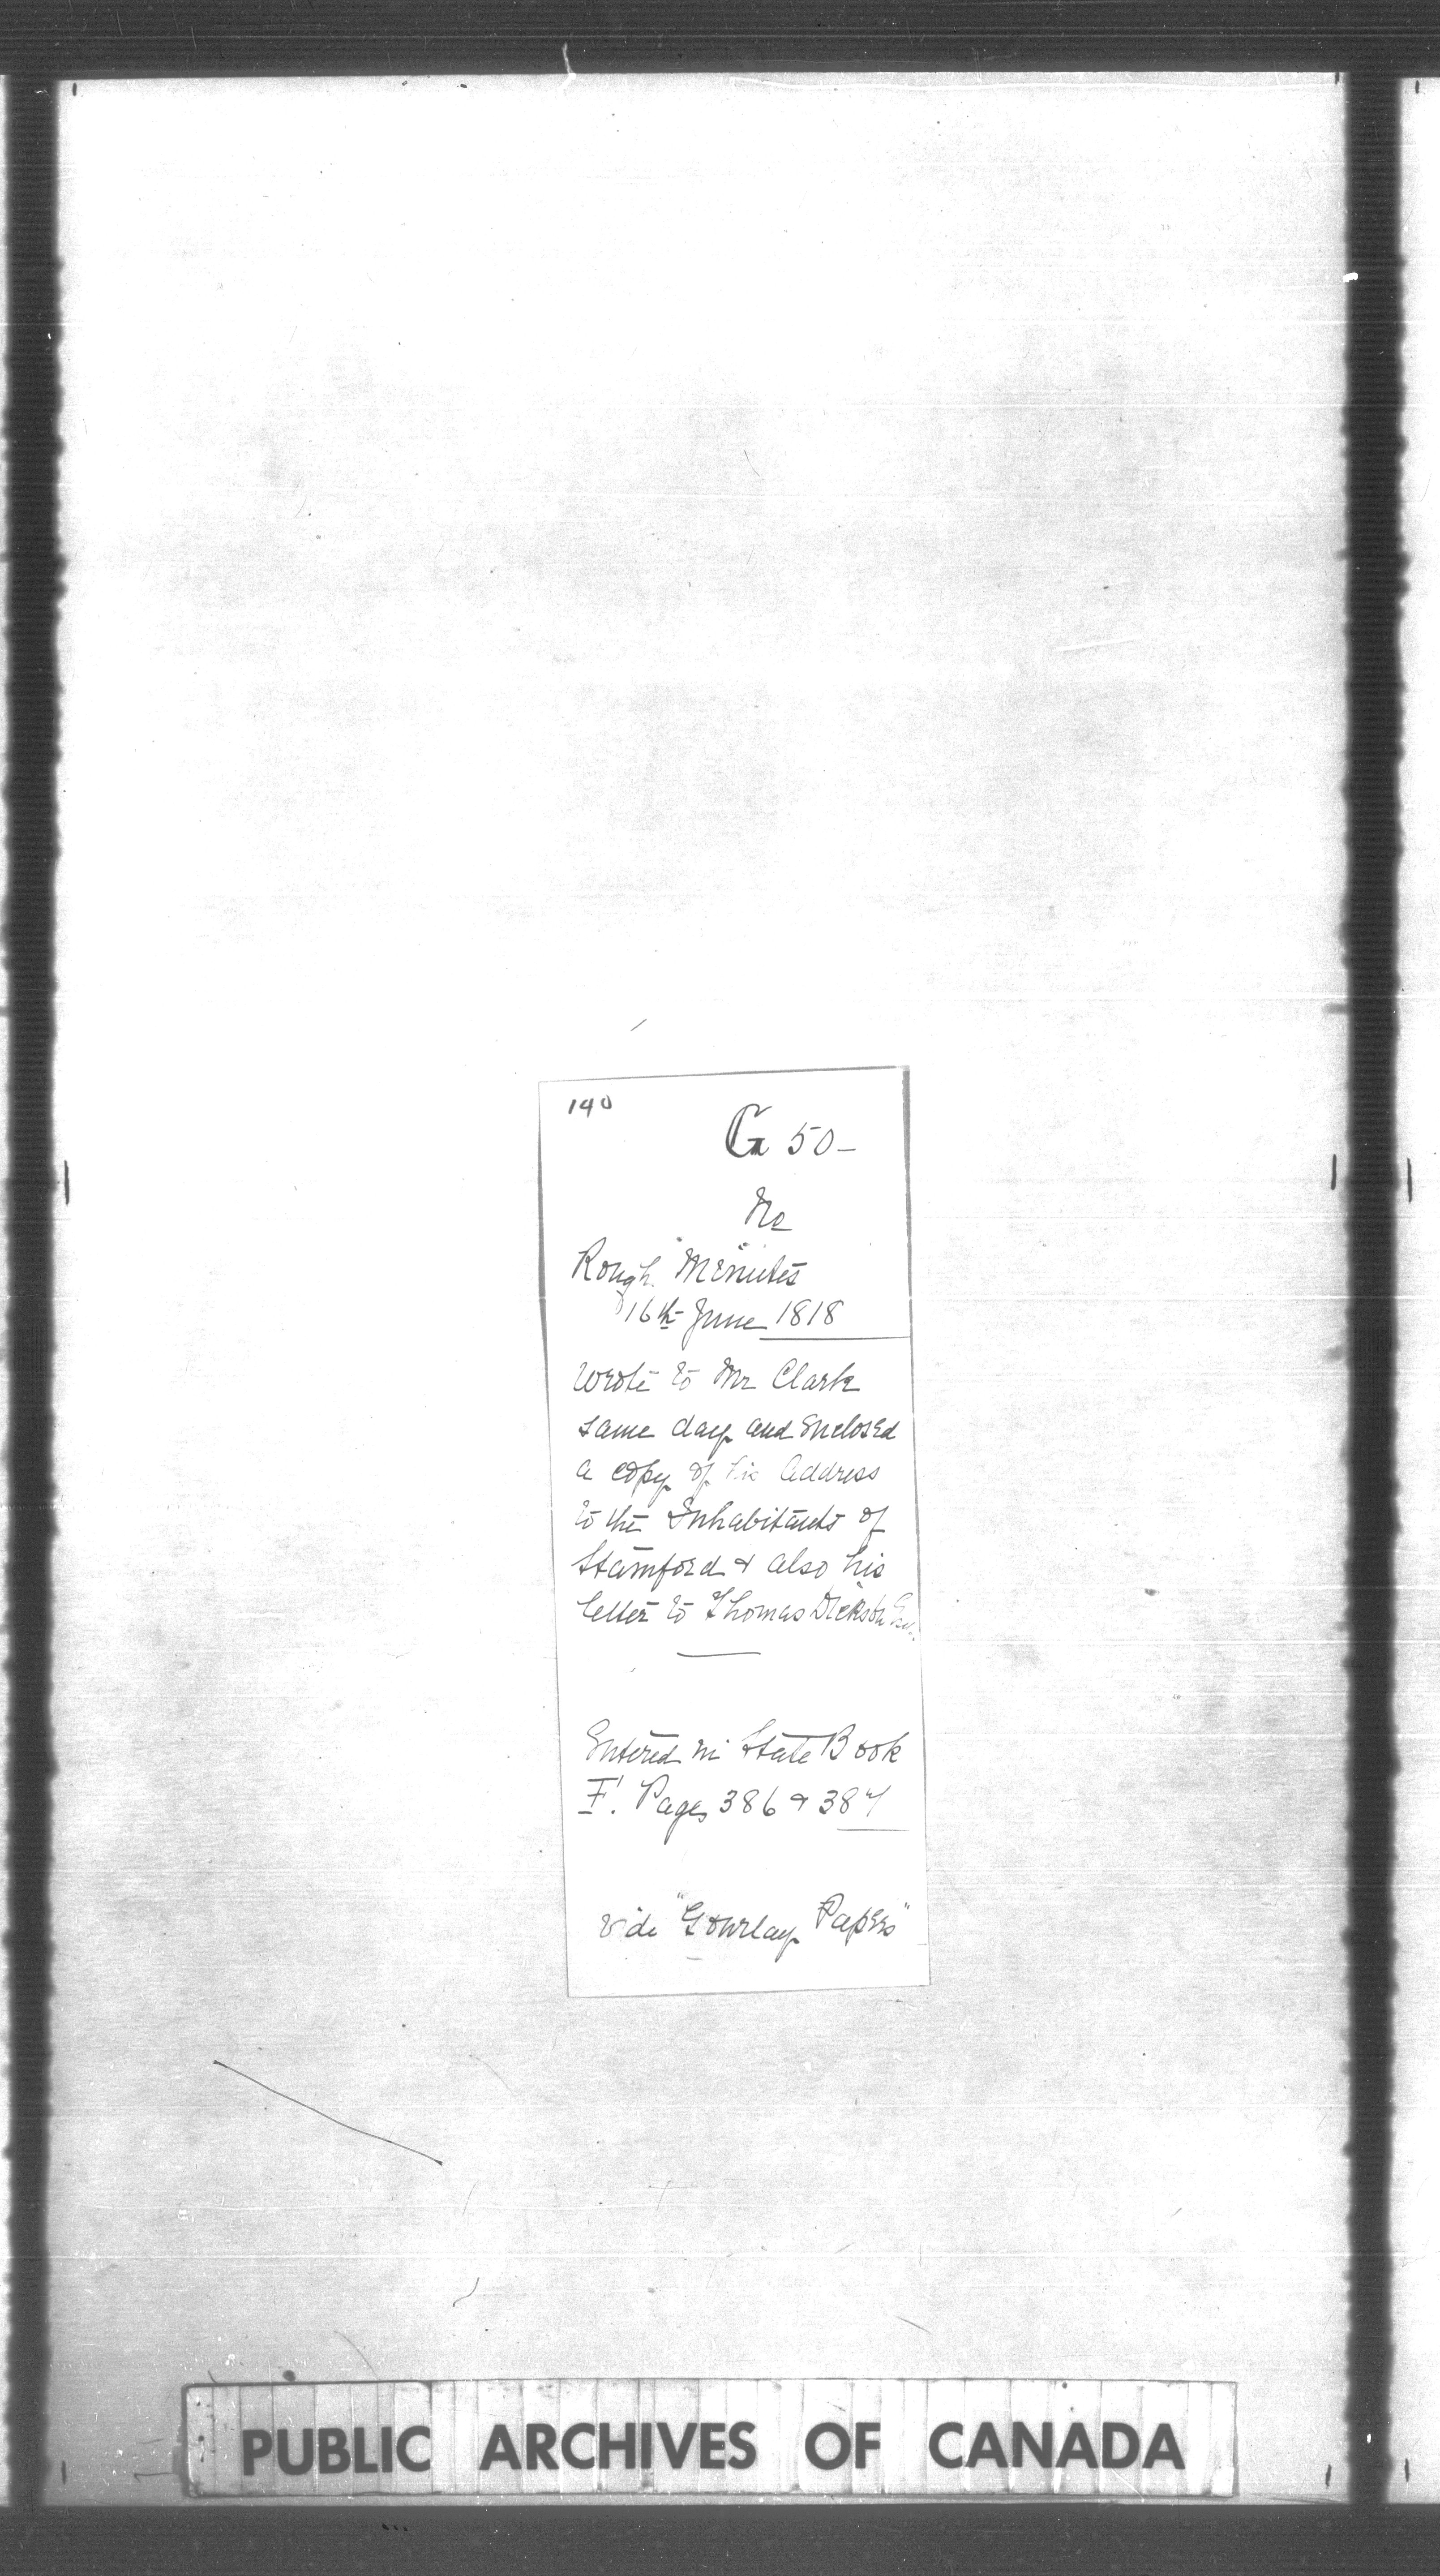 140
G 50-
No
Rough "Minutes"
16th June 1818
Wrote to Mr Clark
same day and Enclosed
a copy of his Address
to the Inhabitants of
Stamford & also his
letter to Thomas Dickson Esq.
Entered in State Book
F. Pages 386 & 387
vide "Gourlay Papers"
PUBLIC ARCHIVES OF CANADA